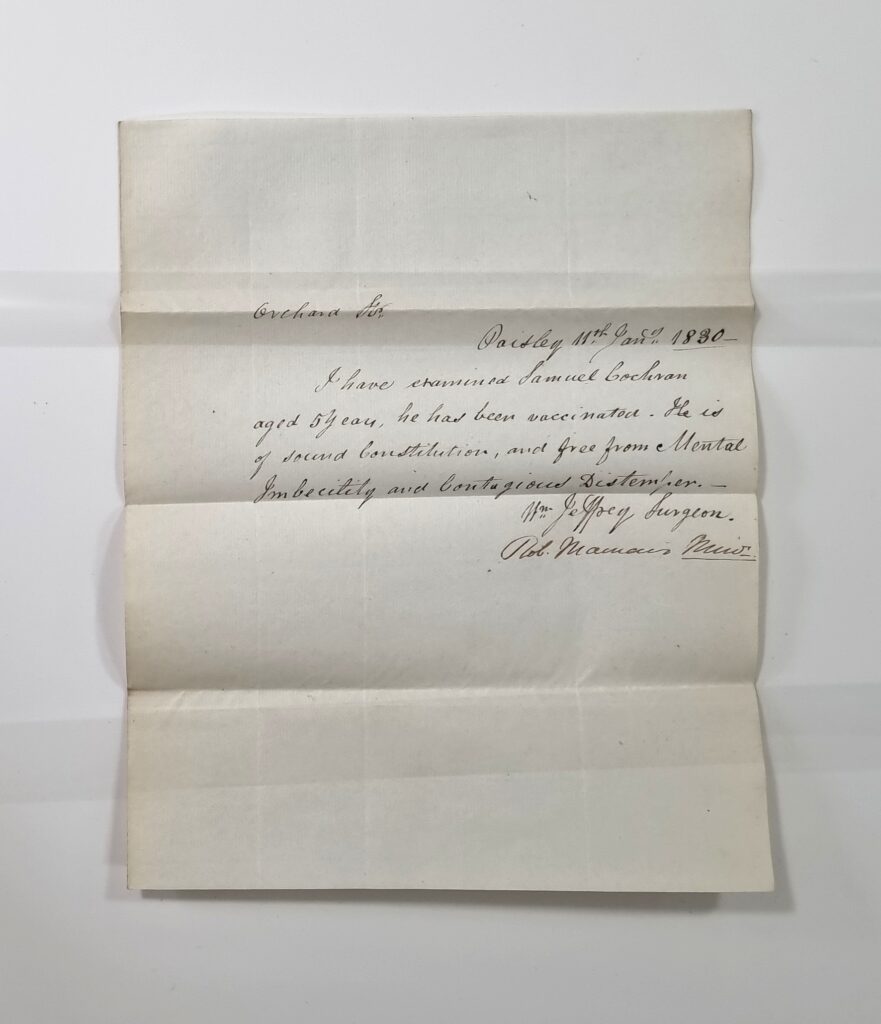 Orchard St.
Paisley 11th Jany. 1830 —
I have examined Samuel Cochran
aged 5 years, he has been vaccinated. He is
of sound Constitution, and free from Mental
Imbecility and Contagious Distemper. —
Wm Jeffrey Surgeon.
Rob.